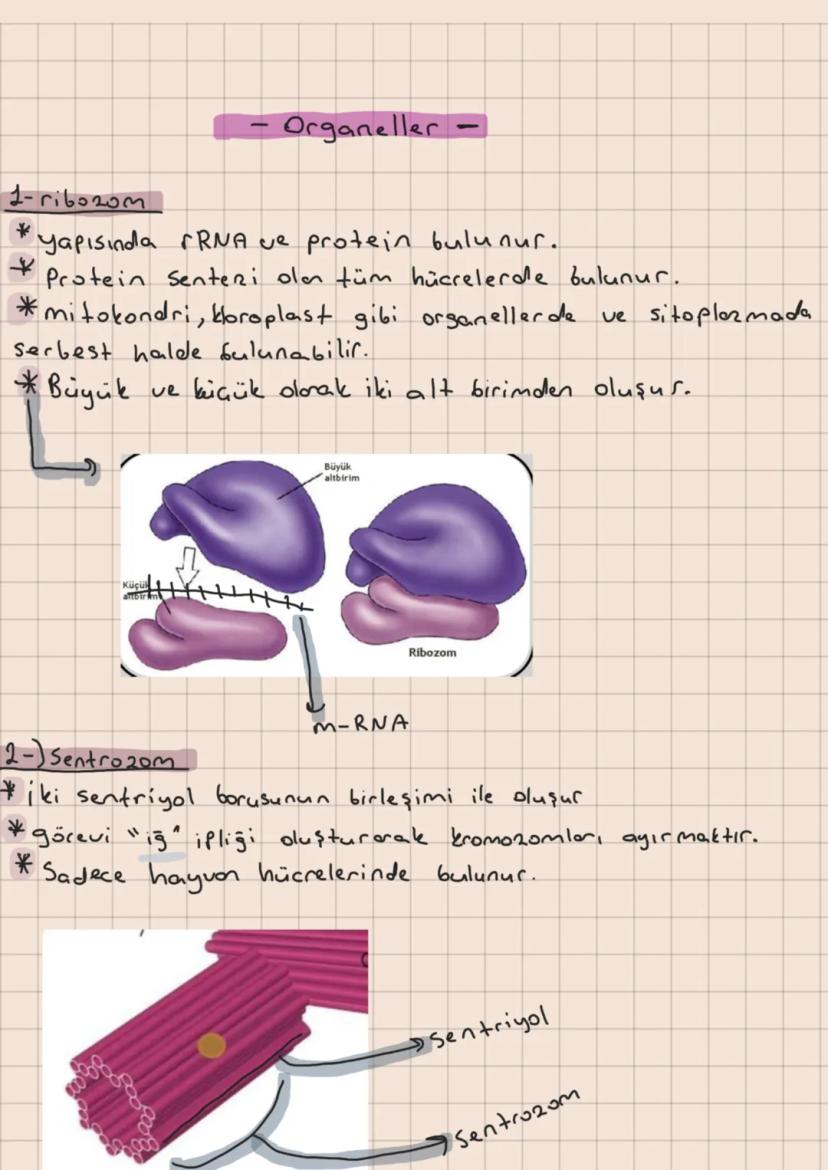 - Organeller -
1-ribozom
* yapısında rRNA ve protein bulunur.
* Protein sentezi olan tüm hücrelerde bulunur.
* mitokondri, kloroplast gibi organellerde ve sitoplazmada
serbest halde bulunabilir.
* Büyük ve küçük olarak iki alt birimden oluşur.
Büyük
altbirim
Küçük
altbirim
Ribozom
m-RNA
2-) Sentrozom
* iki sentriyol borusunun birleşimi ile oluşur
* görevi "iğ" ipliği oluşturarak kromozomları ayırmaktır.
* Sadece hayvan hücrelerinde bulunur.
sentriyol
sentrozom